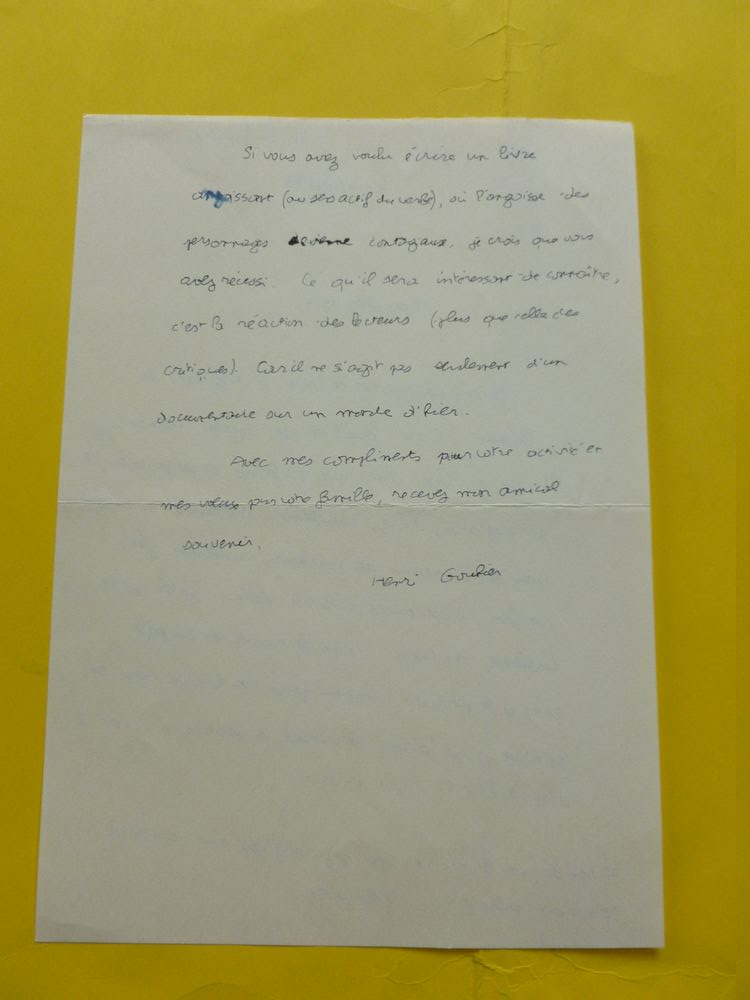 Si vous avez voulu écrire un livre
angoissant (au sens actif du verbe), où l'angoisse des
personnages devienne contagieux, je crois que vous
avez réussi. Ce qu'il sera intéressant de connaître,
c'est la réaction des lecteurs (plus que celle des
critiques). Car il ne s'agit pas seulement d'un
documentaire sur un monde d'hier.
Avec mes compliments pour votre activité et
mes vœux pour votre famille, recevez mon amical
souvenir,
Henri Gouhier